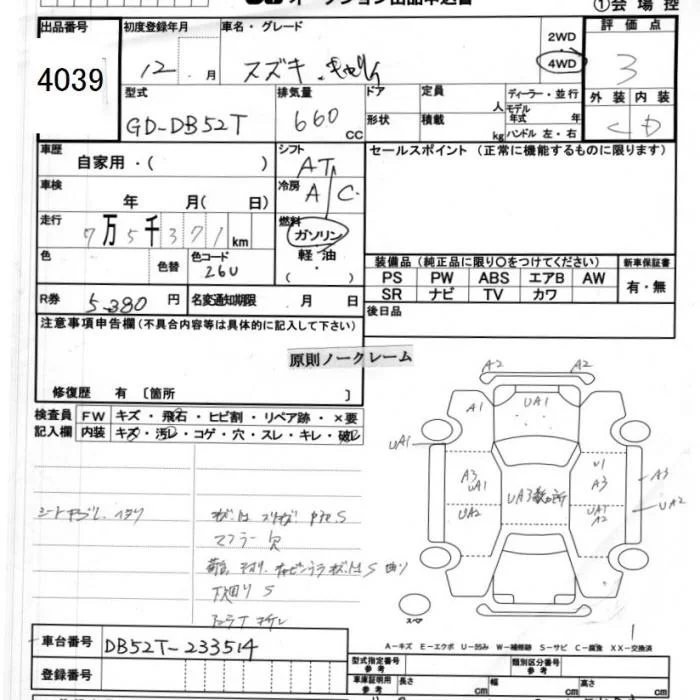 オークション出品申込書
①会場控
出品番号
4039
初度登録年月
12 . 月
車名・グレード
スズキ . キャリィ
2WD
4WD
評価点
3
外装 内装
C D
型式
GD-DB52T
排気量
660 cc
ドア
形状
定員 人
積載 kg
ディーラー・並行
モデル年式 年
ハンドル 左・右
車歴
自家用・( )
シフト
AT
セールスポイント (正常に機能するものに限ります)
車検
年 月( 日)
冷房
A/C
走行
7万5千371km
燃料
ガソリン
軽・油
( ・ )
色
色替
色コード
26U
装備品 (純正品に限り○をつけてください)
PS PW ABS エアB AW
SR ナビ TV カワ
新車保証書
有・無
R券
5.380 円
名変通知期限 月 日
後日品
注意事項申告欄 (不具合内容等は具体的に記入して下さい)
原則ノークレーム
修復歴 有 〔箇所 〕
検査員記入欄
FW キズ・飛石・ヒビ割・リペア跡・×要
内装 キズ・汚レ・コゲ・穴・スレ・キレ・破レ
A2 A2
A1 UA1
UA1
A3 UA1
UA2
UA3数ヶ所
U1
A3
UA1
A2
A3
UA2
マフラー 欠
下回り S
スペア
1
A-キズ E-エクボ U-凹み W-補修跡 S-サビ C-腐食 XX-交換済
車台番号
DB52T-233514
登録番号
型式指定番号
参考
類別区分番号
参考
車庫証明用
参考
長さ cm
幅 cm
高さ cm